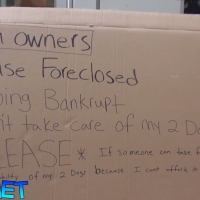 owners
Foreclosed
Bankrupt
take care of my 2 Do
PLEASE* If someone can take
of my 2 Dogs because I cant afford
ET